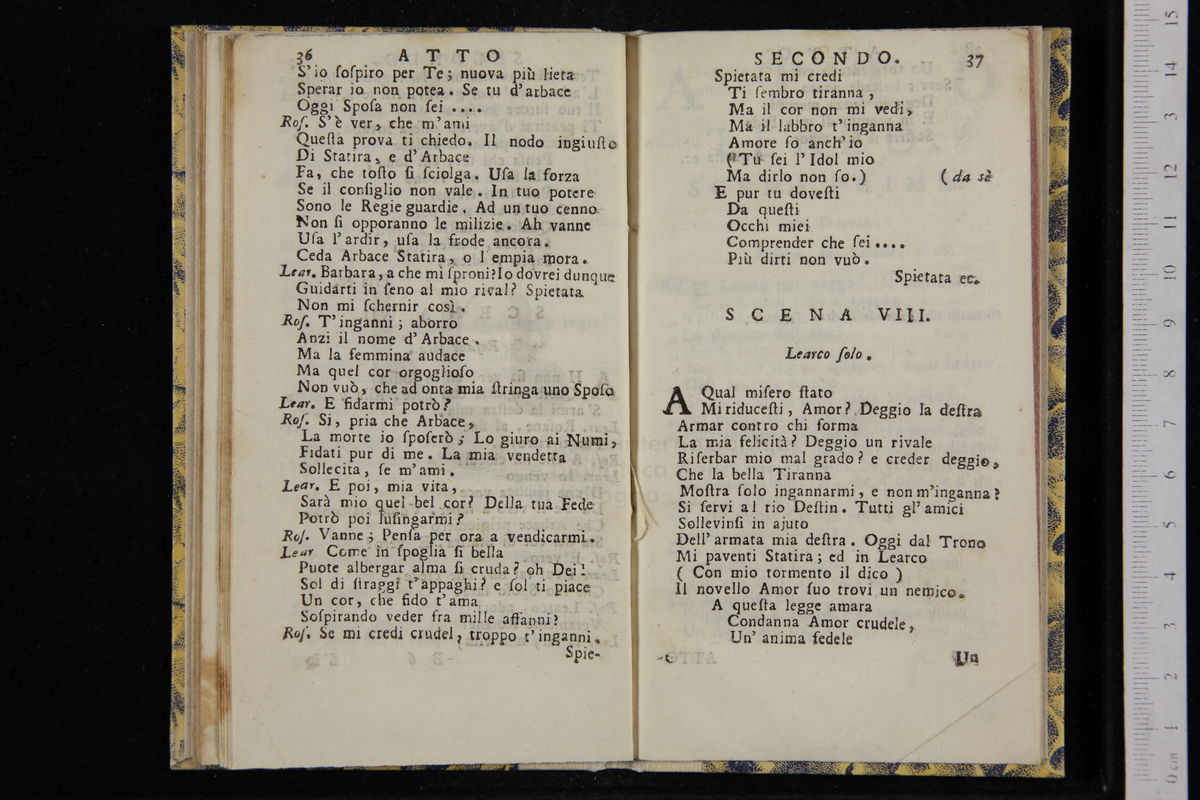 36 ATTO
S'io ſoſpiro per Te; nuova più lieta
Sperar io non potea. Se tu d'arbace
Oggi Spoſa non ſei ....
Roſ. S'è ver, che m'ami
Queſta prova ti chiedo. Il nodo ingiuſto
Di Statira, e d'Arbace
Fa, che toſto ſi ſciolga. Uſa la forza
Se il conſiglio non vale. In tuo potere
Sono le Regie guardie. Ad un tuo cenno
Non ſi opporanno le milizie. Ah vanne
Uſa l'ardir, uſa la frode ancora.
Ceda Arbace Statira, o l'empia mora.
Lear. Barbara, a che mi ſproni? Io dovrei dunque
Guidarti in ſeno al mio rival? Spietata
Non mi ſchernir così.
Roſ. T'inganni; aborro
Anzi il nome d'Arbace.
Ma la femmina audace
Ma quel cor orgoglioſo
Non vuò, che ad onta mia ſtringa uno Spoſo
Lear. E fidarmi potrò?
Roſ. Si, pria che Arbace,
La morte io ſpoſerò; Lo giuro ai Numi,
Fidati pur di me. La mia vendetta
Sollecita, ſe m'ami.
Lear. E poi, mia vita,
Sarà mio quel bel cor? Della tua Fede
Potrò poi luſingarmi?
Roſ. Vanne; Penſa per ora a vendicarmi.
Lear Come in ſpoglia ſi bella
Puote albergar alma ſi cruda? oh Dei!
Sol di ſtraggi t'appaghi? e ſol ti piace
Un cor, che fido t'ama
Soſpirando veder fra mille affanni?
Roſ. Se mi credi crudel, troppo t'inganni.
Spie-
SECONDO. 37
Spietata mi credi
Ti ſembro tiranna,
Ma il cor non mi vedi,
Ma il labbro t'inganna
Amore ſo anch'io
(Tu ſei l'Idol mio
Ma dirlo non ſo.) (da sè
E pur tu doveſti
Da queſti
Occhi miei
Comprender che ſei ....
Più dirti non vuò.
Spietata ec.
SCENA VIII.
Learco ſolo.
A Qual miſero ſtato
Mi riduceſti, Amor? Deggio la deſtra
Armar contro chi forma
La mia felicità? Deggio un rivale
Riſerbar mio mal grado? e creder deggio,
Che la bella Tiranna
Moſtra ſolo ingannarmi, e non m'inganna?
Si ſervi al rio Deſtin. Tutti gl'amici
Sollevinſi in ajuto
Dell'armata mia deſtra. Oggi dal Trono
Mi paventi Statira; ed in Learco
( Con mio tormento il dico )
Il novello Amor ſuo trovi un nemico.
A queſta legge amara
Condanna Amor crudele,
Un' anima fedele
Un
15
14
13
12
11
10
9
8
7
6
5
4
3
2
1
0 cm